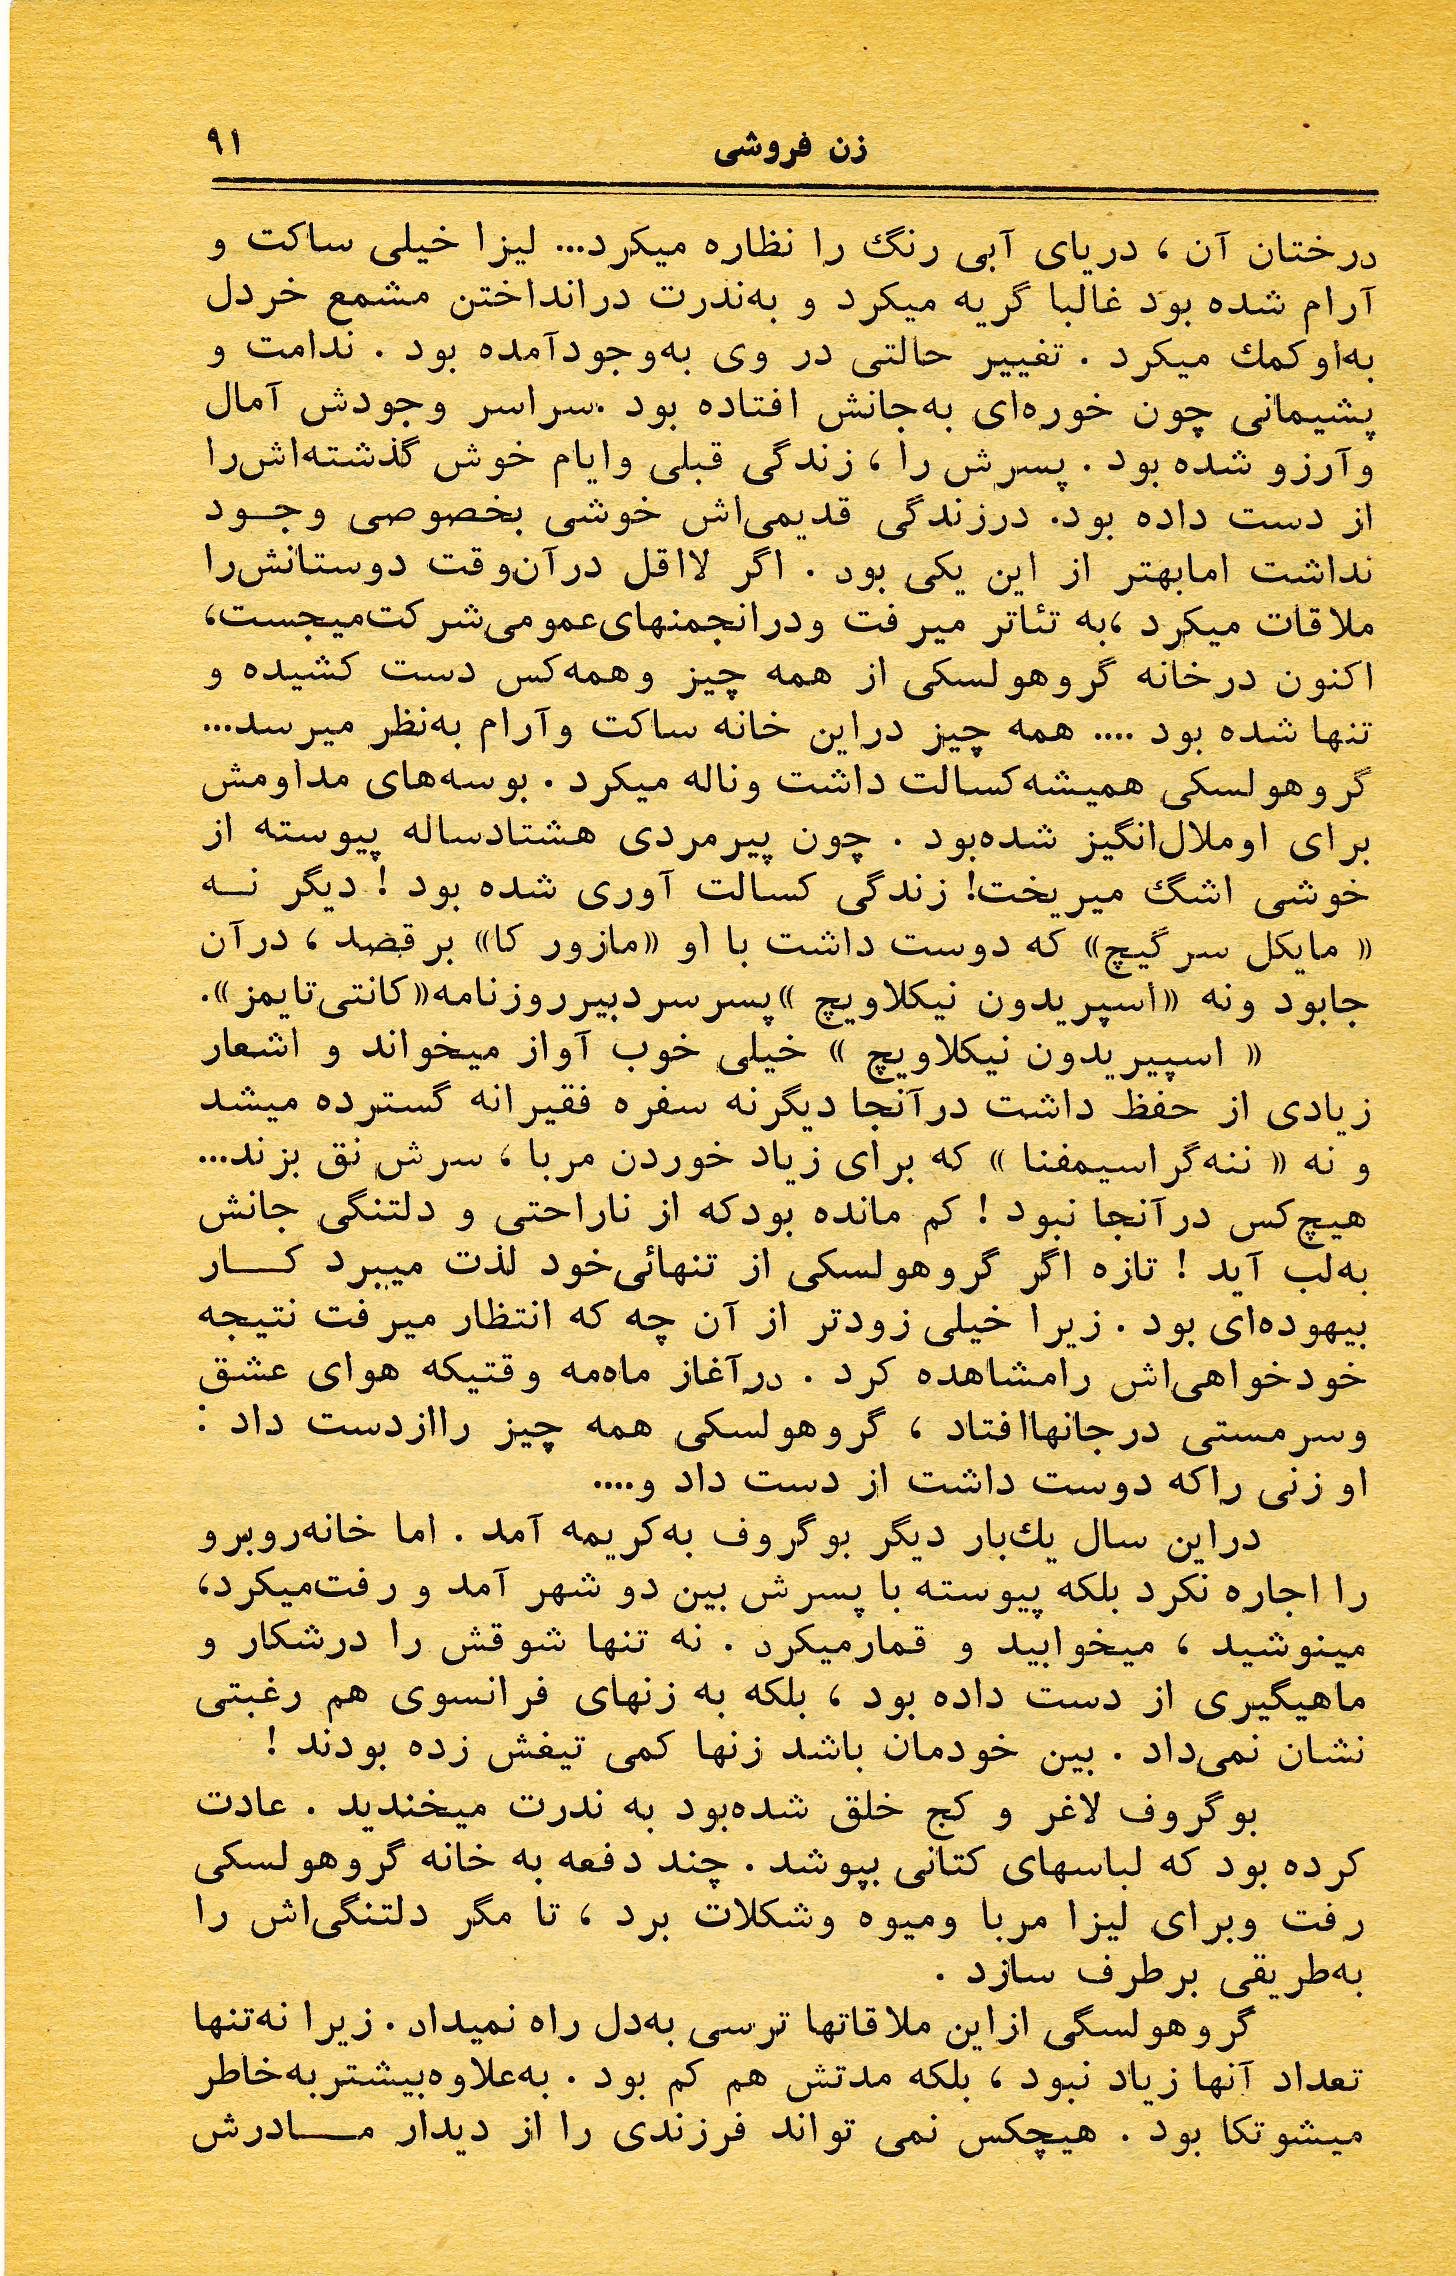 زن فروشی ۹۱
درختان آن ، دریای آبی رنگ را نظاره میکرد... لیزا خیلی ساکت و
آرام شده بود غالبا گریه میکرد و به‌ندرت درانداختن مشمع خردل
به‌او کمك میکرد . تغییر حالتی در وی به‌وجودآمده بود . ندامت و
پشیمانی چون خوره‌ای به‌جانش افتاده بود .سراسر وجودش آمال
وآرزو شده بود . پسرش را ، زندگی قبلی وایام خوش گذشته‌اش‌را
از دست داده بود. درزندگی قدیمی‌اش خوشی بخصوصی وجـود
نداشت امابهتر از این یکی بود . اگر لااقل درآن‌وقت دوستانش‌را
ملاقات میکرد ،به تئاتر میرفت ودرانجمنهای‌عمومی‌شرکت‌میجست،
اکنون درخانه گروهولسکی از همه چیز وهمه‌کس دست کشیده و
تنها شده بود .... همه چیز دراین خانه ساکت وآرام به‌نظر میرسد...
گروهولسکی همیشه‌کسالت داشت وناله میکرد . بوسه‌های مداومش
برای اوملال‌انگیز شده‌بود . چون پیرمردی هشتادساله پیوسته از
خوشی اشگ میریخت! زندگی کسالت آوری شده بود ! دیگر نــه
« مایکل سرگیچ» که دوست داشت با او «مازور کا» برقصد ، درآن
جابود ونه «اسپریدون نیکلاویچ »پسرسردبیرروزنامه«کانتی‌تایمز».
« اسپیریدون نیکلاویچ » خیلی خوب آواز میخواند و اشعار
زیادی از حفظ داشت درآنجا دیگرنه سفره فقیرانه گسترده میشد
و نه « ننه‌گراسیمفنا » که برای زیاد خوردن مربا ، سرش نق بزند...
هیچ‌کس درآنجا نبود ! کم مانده بودکه از ناراحتی و دلتنگی جانش
به‌لب آید ! تازه اگر گروهولسکی از تنهائی‌خود لذت میبرد کــار
بیهوده‌ای بود . زیرا خیلی زودتر از آن چه که انتظار میرفت نتیجه
خودخواهی‌اش رامشاهده کرد . درآغاز ماه‌مه وقتیکه هوای عشق
وسرمستی درجانهاافتاد ، گروهولسکی همه چیز راازدست داد :
او زنی راکه دوست داشت از دست داد و....
دراین سال یك‌بار دیگر بوگروف به‌کریمه آمد . اما خانه‌روبرو
را اجاره نکرد بلکه پیوسته با پسرش بین دو شهر آمد و رفت‌میکرد،
مینوشید ، میخوابید و قمارمیکرد . نه تنها شوقش را درشکار و
ماهیگیری از دست داده بود ، بلکه به زنهای فرانسوی هم رغبتی
نشان نمی‌داد . بین خودمان باشد زنها کمی تیغش زده بودند !
بوگروف لاغر و کج خلق شده‌بود به ندرت میخندید . عادت
کرده بود که لباسهای کتانی بپوشد . چند دفعه به خانه گروهولسکی
رفت وبرای لیزا مربا ومیوه وشکلات برد ، تا مگر دلتنگی‌اش را
به‌طریقی برطرف سازد .
گروهولسگی ازاین ملاقاتها ترسی به‌دل راه نمیداد . زیرا نه‌تنها
تعداد آنها زیاد نبود ، بلکه مدتش هم کم بود . به‌علاوه‌بیشتربه‌خاطر
میشوتکا بود . هیچکس نمی تواند فرزندی را از دیدار مــادرش